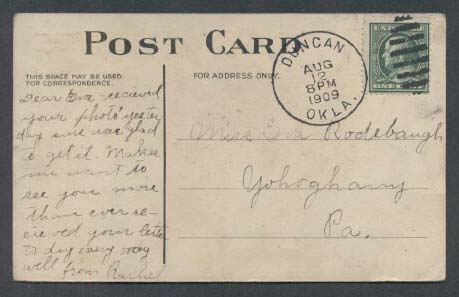 POST CARD
THIS SPACE MAY BE USED
FOR CORRESPONDENCE.
FOR ADDRESS ONLY.
DUNCAN
AUG
12
8 PM
1909
OKLA.
Dear Eva - recieved
your photo yester
day sure was glad
to get it. Makes
me want to
see you more
than ever re-
cieved your letter
to day every
well
from Rachel
Miss Eva Rodebaugh
Yohoghany
Pa.